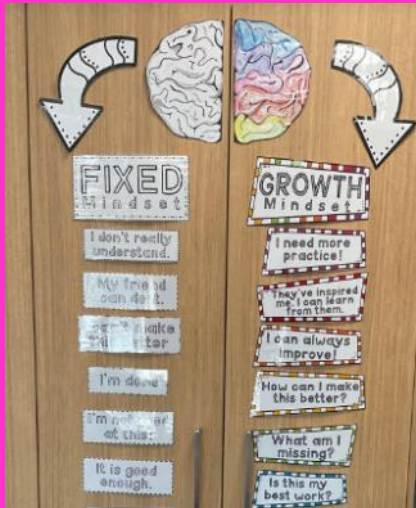 FIXED
Mindset
I don't really
understand.
My friend
can do it.
I can't make
this better
I'm done
I'm not good
at this.
It is good
enough.
GROWTH
Mindset
I need more
practice!
They've inspired
me. I can learn
from them.
I can always
improve!
How can I make
this better?
What am I
missing?
Is this my
best work?